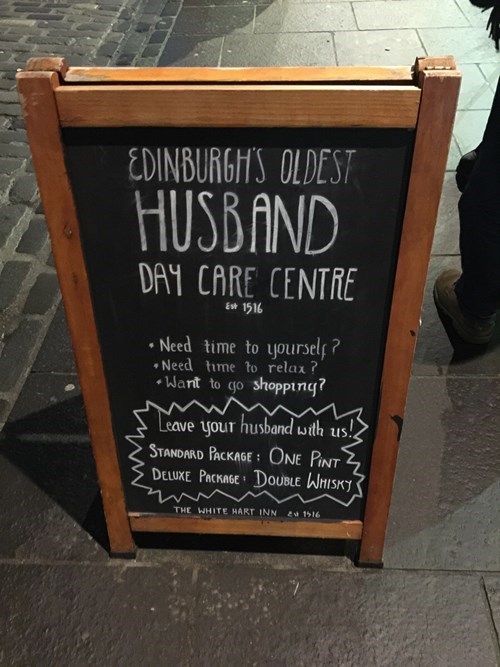 EDINBURGH'S OLDEST
HUSBAND
DAY CARE CENTRE
Est 1516
• Need time to yourself?
• Need time to relax?
• Want to go shopping?
Leave your husband with us!
STANDARD PACKAGE: ONE PINT
DELUXE PACKAGE: DOUBLE WHISKY
THE WHITE HART INN Est 1516